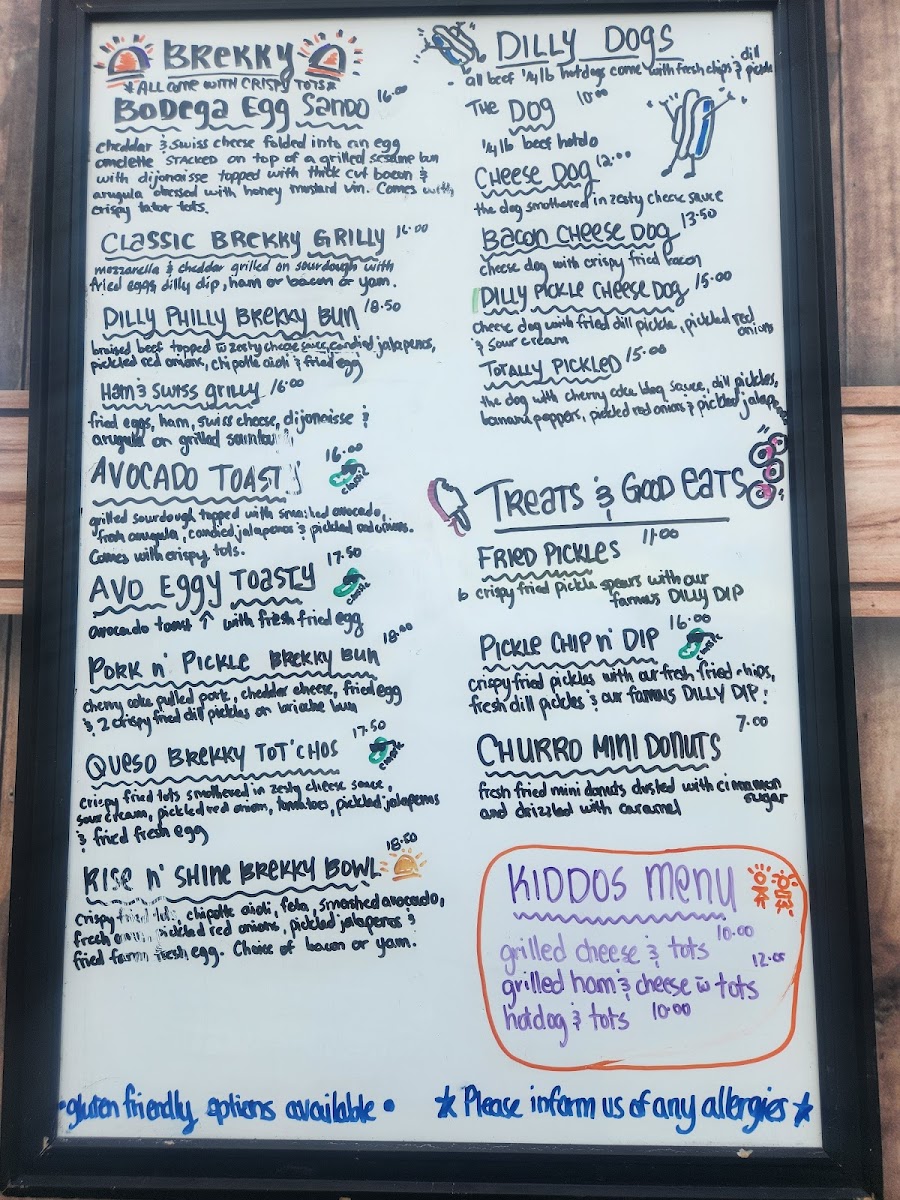 BREKKY
*ALL COME WITH CRISPY TOTS*
BODEGA EGG SANDO 16.00
cheddar & swiss cheese folded into an egg
omelette STACKED on top of a grilled sesame bun
with dijonaisse topped with thick cut bacon &
arugula dressed with honey mustard vin. Comes with
crispy tator tots.
CLASSIC BREKKY GRILLY 16.00
mozzarella & cheddar grilled on sourdough with
fried eggs, dilly dip, ham or bacon or yam.
DILLY PHILLY BREKKY BUN 18.50
braised beef topped w zesty cheese sauce, candied jalapenos,
pickled red onions, chipotle aioli & fried egg
HAM & SWISS GRILLY 16.00
fried eggs, ham, swiss cheese, dijonaisse &
arugula on grilled
AVOCADO TOAST 16.00
classic
grilled sourdough topped with smashed avocado,
fresh arugula, candied jalapenos & pickled red onions.
Comes with crispy tots.
AVO EGGY TOASTY 17.50
classic
avocado toast ↑ with fresh fried egg
PORK N' PICKLE BREKKY BUN 18.00
cherry coke pulled pork, cheddar cheese, fried egg
& 2 crispy fried dill pickles on brioche bun
QUESO BREKKY TOT'CHOS 17.50
classic
crispy fried tots smothered in zesty cheese sauce,
sour cream, pickled red onion, tomatoes, pickled jalapenos
& fried fresh egg
RISE N' SHINE BREKKY BOWL 18.50
crispy fried tots, chipotle aioli, feta, smashed avocado,
fresh pickled red onions, pickled jalapenos &
fried farm fresh egg. Choice of bacon or yam.
DILLY DOGS
all beef 1/4 lb hotdogs come with fresh chips & dill pickle
THE DOG 10.00
1/4 lb beef hotdo
CHEESE DOG 12.00
the dog smothered in zesty cheese sauce
BACON CHEESE DOG 13.50
cheese dog with crispy fried bacon
DILLY PICKLE CHEESE DOG 15.00
cheese dog with fried dill pickle, pickled red onions
& sour cream
TOTALLY PICKLED 15.00
the dog with cherry coke bbq sauce, dill pickles,
banana peppers, pickled red onions & pickled jalapenos
TREATS & GOOD EATS
FRIED PICKLES 11.00
6 crispy fried pickle spears with our
famous DILLY DIP
PICKLE CHIP N' DIP 16.00
classic
crispy fried pickles with our fresh fried chips,
fresh dill pickles & our famous DILLY DIP!
CHURRO MINI DONUTS 7.00
fresh fried mini donuts dusted with cinnamon sugar
and drizzled with caramel
KIDDOS MENU
grilled cheese & tots 10.00
grilled ham & cheese w tots 12.00
hotdog & tots 10.00
•gluten friendly options available •
* Please inform us of any allergies *